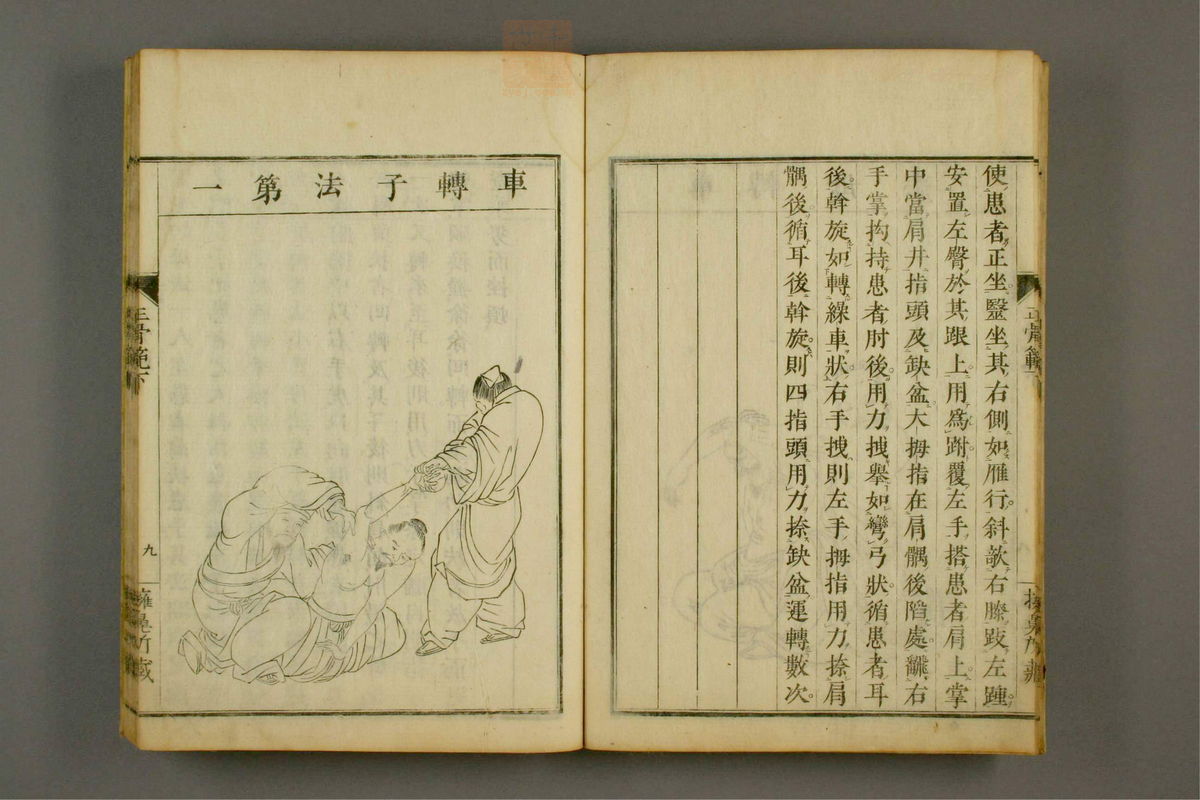 使患者正坐醫坐其右側如雁行斜欹右膝跂左踵
安置左臀於其跟上用爲跗覆左手搭患者肩上掌
中當肩井指頭及缺盆大拇指在肩髃後陷處右
手掌抅持患者肘後用力拽舉如彎弓狀循患者耳
後斡旋如轉繰車狀右手拽則左手拇指用力捺肩
髃後循耳後斡旋則四指頭用力捺缺盆運轉數次
正骨範下
車轉子法第一
正骨範下
九
擁鼻所藏